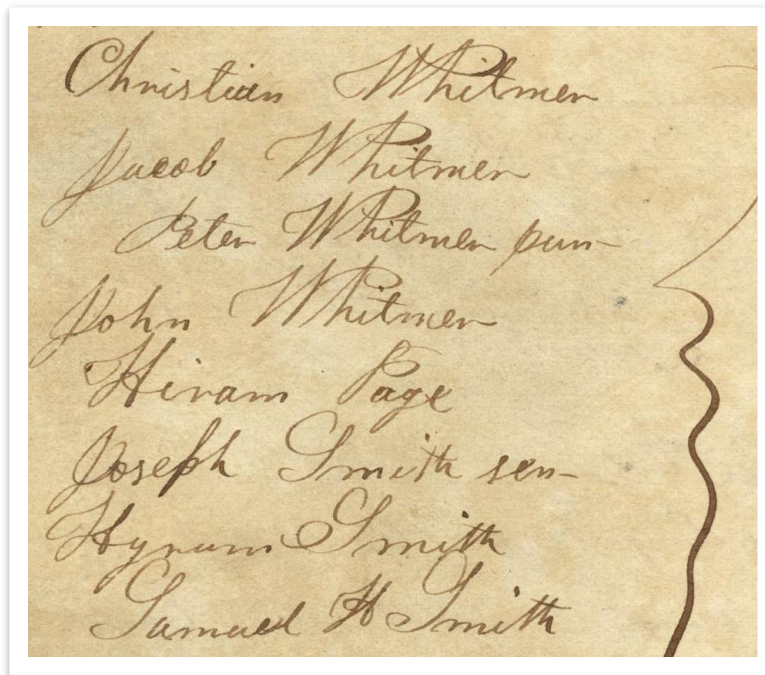 Christian Whitmer
Jacob Whitmer
Peter Whitmer jun-
John Whitmer
Hiram Page
Joseph Smith sen-
Hyrum Smith
Samuel H Smith